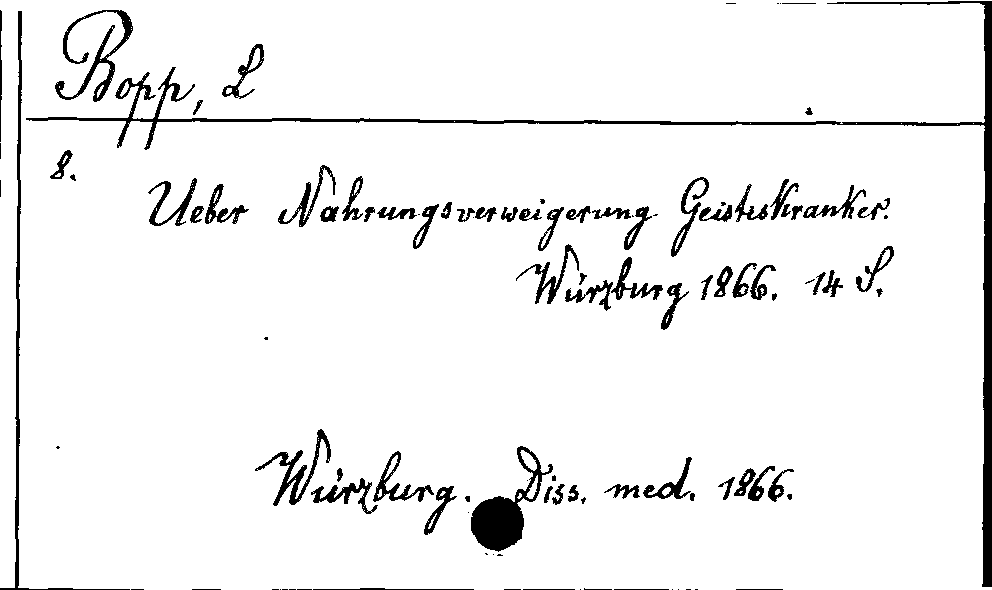 Bopp, L
8.
Ueber Nahrungsverweigerung Geisteskranker.
Würzburg 1866. 14 S.
Würzburg. Diss. med. 1866.